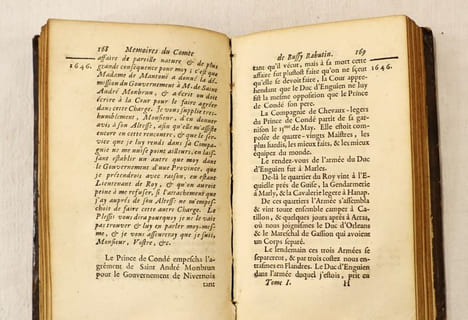 168 Memoires du Comte
1646.
affaire de pareille nature & de plus
grande consequence pour moy ; c'est que
Madame de Mantoni a donné la dé-
mission du Gouvernement à M. de Saint
André Monbrun, & a écrit un doit
écrire à la Cour pour le faire agréer
dans cette Charge. Je vous supplie tres-
humblement, Monsieur, d'en donner
avis à son Altesse, afin qu'elle m'assiste
encore en cette rencontre, & que le ser-
vice que je luy rends dans sa Compa-
gnie ne me nuise point ailleurs, en lais-
sant établir un autre que moy dans
le Gouvernement d'une Province, que
je prétendrois avec raison, en estant
Lieutenant de Roy, & qu'on auroit
peine à me refuser, si l'attachement que
j'ay auprés de son Altesse ne m'empes-
choit de faire cette autre Charge. La
Plessis vous dira pourquoy je ne vais
pas trouver & luy en parler moy-mes-
me, & je vous asseureray que je suis,
Monsieur, Vostre, &c.
Le Prince de Condé empescha l'a-
grément de Saint André Monbrun
pour le Gouvernement de Nivernois
tant
de Bussy Rabutin. 169
1646.
tant qu'il vécut, mais à sa mort cette
affaire fut plustost faite qu'on ne sçeut
qu'elle se devoit faire, la Cour appre-
hendant que le Duc d'Enguien ne luy
fist la mesme opposition que le Prince
de Condé son pere.
La Compagnie de Chevaux-legers
du Prince de Condé partit de sa gar-
nison le 15me de May. Elle estoit com-
posée de quatre-vingts Maistres, les
plus hardis, les mieux faits, & les mieux
équipez du monde.
Le rendez-vous de l'armée du Duc
d'Enguien fut à Marles.
De-là le quartier du Roy vint à l'E-
quielle prés de Guise, la Gendarmerie
à Marly, & la Cavalerie legere à Hanap.
De ces quartiers l'Armée s'assembla
& vint toute ensemble camper à Ca-
tillon, & quelques jours aprés à Arras,
où nous joignismes le Duc d'Orleans
& le Mareschal de Gassion qui avoient
un Corps separé.
Le lendemain ces trois Armées se
separerent, & par trois costez nous en-
trasmes en Flandres. Le Duc d'Enguien
dans l'armée duquel j'estois, prit en
Tome I. H